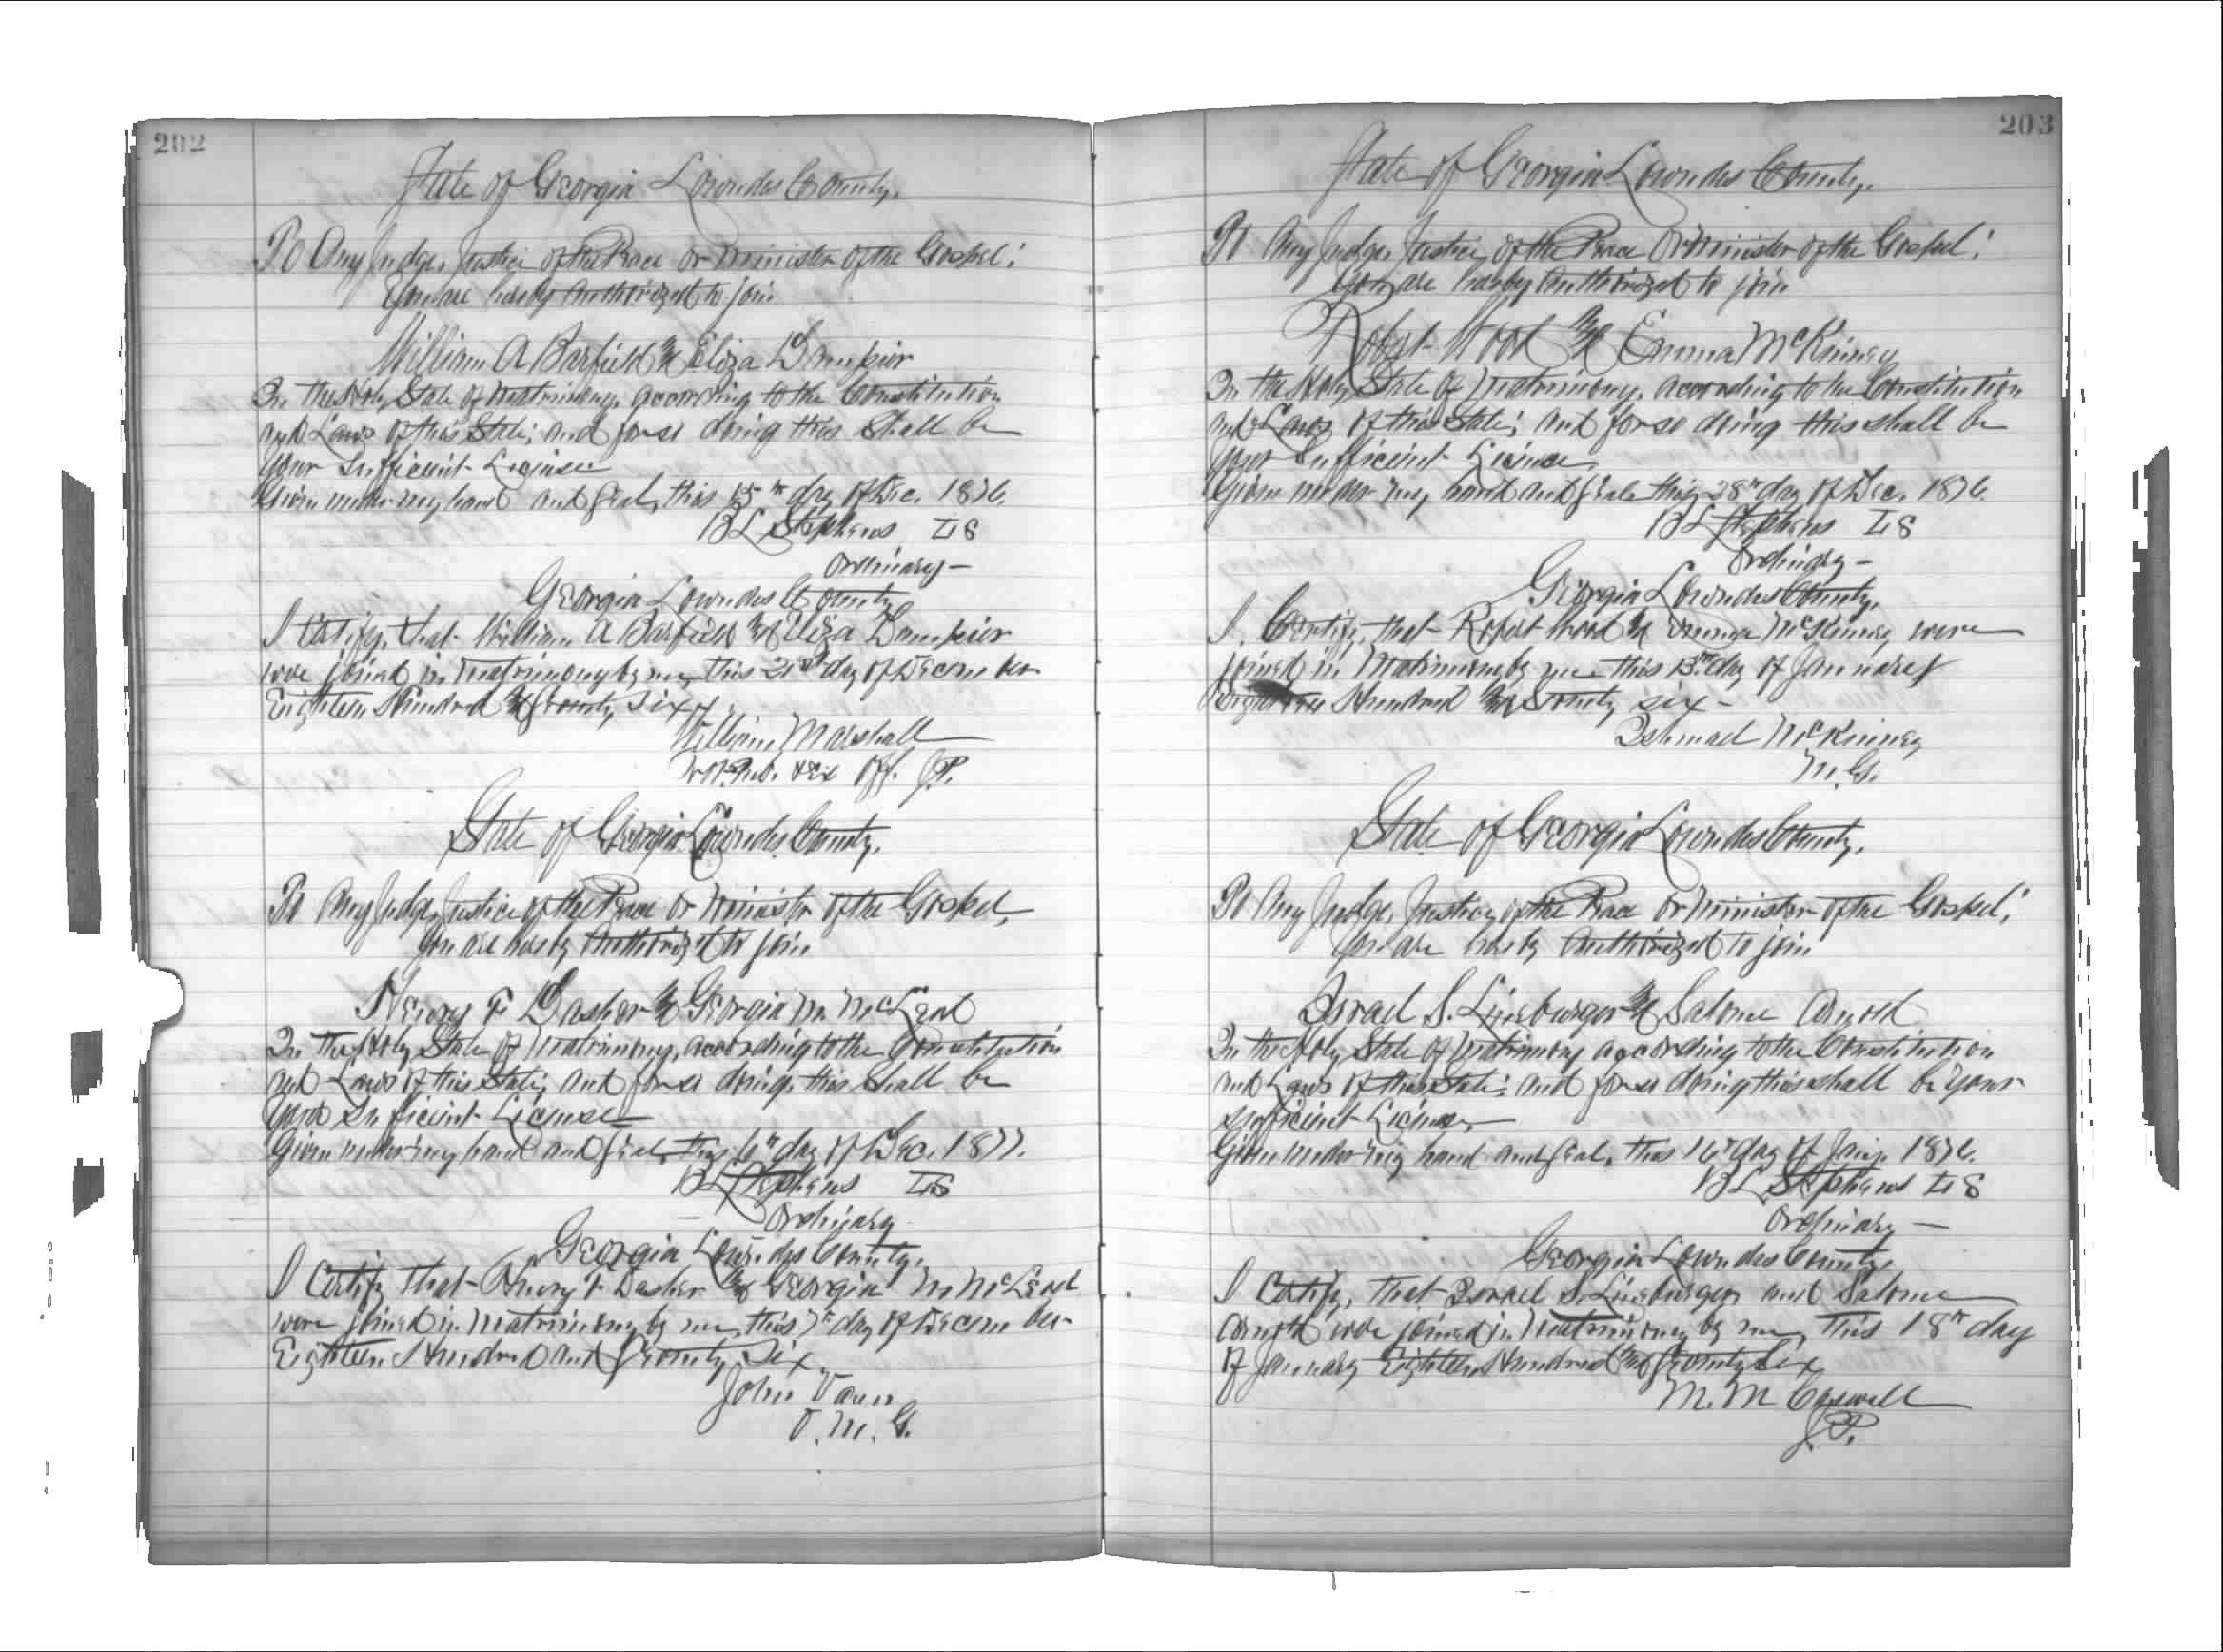 202
State of Georgia Lowndes County.
To Any Judge, Justice of the Peace or Minister of the Gospel:
You are hereby Authorized to join
William A Barfield & Eliza Dampier
In the Holy State of Matrimony, according to the Constitution
and Laws of this State; and for so doing this Shall be
your Sufficient License
Given under my hand and Seal, this 15th day of Dec. 1876.
B L Stephens LS
Ordinary—
Georgia Lowndes County
I Certify, that William A Barfield & Eliza Dampier
were joined in Matrimony by me, this 21st day of December
Eighteen Hundred & Seventy Six.
William Marshall
Not. Pub. & Ex Off. J.P.
State of Georgia Lowndes County.
To Any Judge, Justice of the Peace or Minister of the Gospel,
You are hereby Authorized to join
Henry F Dasher & Georgia M McLeod
In the Holy State of Matrimony, according to the Constitution
and Laws of this State; and for so doing, this Shall be
your Sufficient License
Given under my hand and Seal, this 6th day of Dec. 1877.
B L Stephens LS
Ordinary
Georgia Lowndes County.
I Certify that Henry F Dasher & Georgia M McLeod
were joined in Matrimony by me, this 7th day of December
Eighteen Hundred and Seventy Six,
John Vann
O. M. G.
203
State of Georgia Lowndes County.
To Any Judge, Justice of the Peace or Minister of the Gospel:
You are hereby Authorized to join
Robert Wood & Emma McKinney
In the Holy State of Matrimony, according to the Constitution
and Laws of this State; and for so doing this shall be
your Sufficient License,
Given under my hand and Seal this 28th day of Dec. 1876.
B L Stephens LS
Ordinary—
Georgia Lowndes County,
I, Certify, that Robert Wood & Emma McKinney were
joined in Matrimony by me this 13th day of January
Eighteen Hundred & Seventy six—
Ishmael McKinney
M. G.
State of Georgia Lowndes County.
To Any Judge, Justice of the Peace or Minister of the Gospel;
You are hereby Authorized to join
Israel S. Lineburger & Salome Arnold
In the Holy State of Matrimony according to the Constitution
and Laws of this State; and for so doing this shall be your
sufficient License,
Given under my hand and Seal, this 16th day of Jany. 1876.
B L Stephens LS
Ordinary—
Georgia Lowndes County,
I Certify, that Israel S. Lineburger and Salome
Arnold were joined in Matrimony by me, this 18th day
of January Eighteen Hundred & Seventy Six
M. M Caswell
J.P.